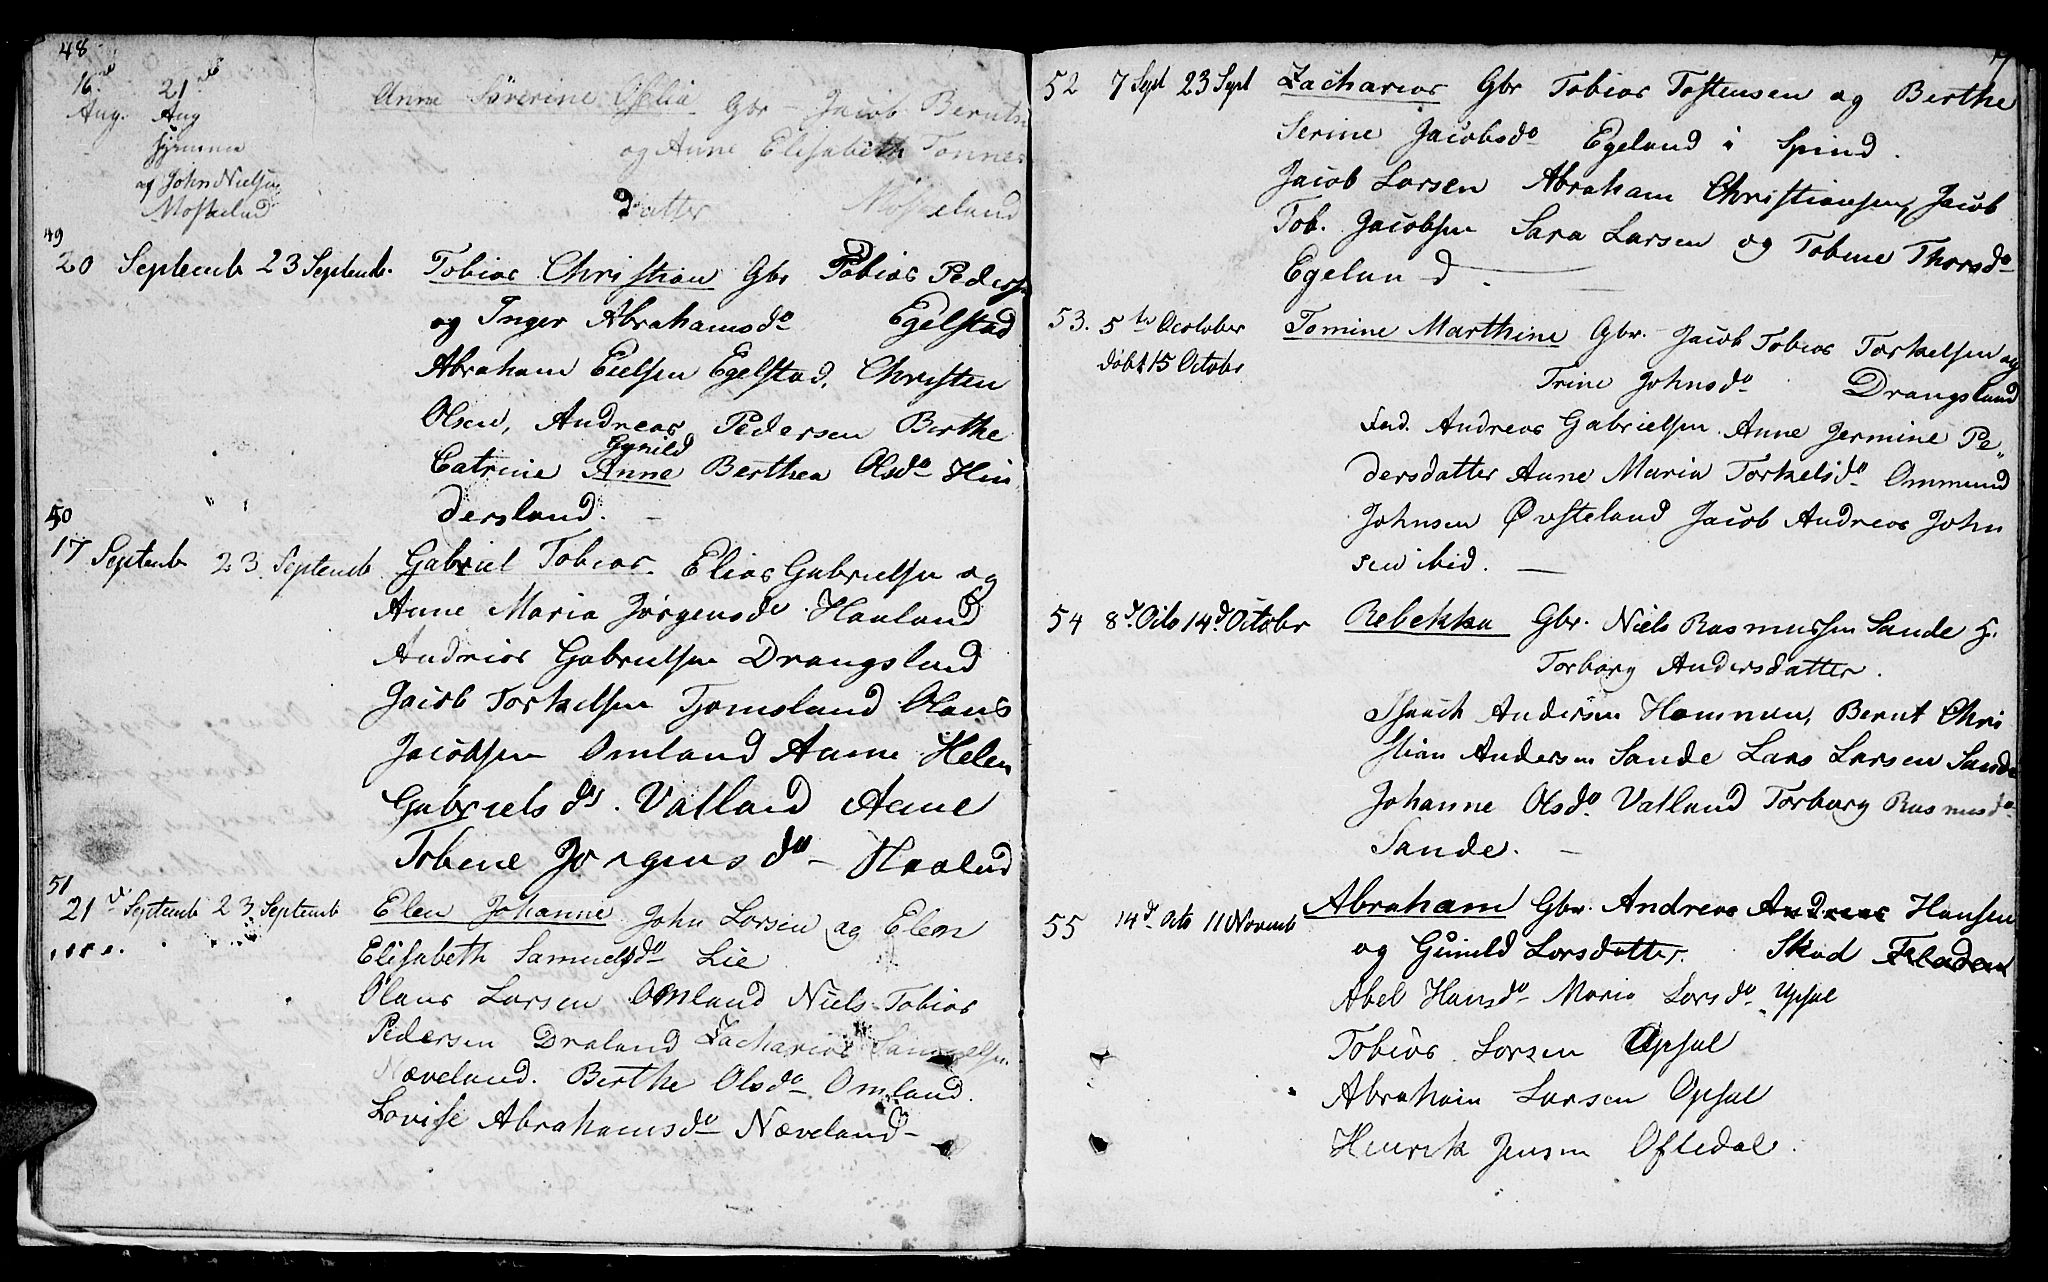 48
16de Aug. 21de Aug
hjemme
af John Nielsen
Moskeland
Anne Severine Ofelia Gbr - Jacob Bernts
og Anne Elisabeth Tonnes
datter Moskeland
49
20 Septemb 23 Septemb. Tobias Christian Gbr Tobias Peders
og Inger Abrahamsd. Egelstad
Abraham Eielsen Egelstad, Christen
Olsen, Andreas Pedersen Berthe
Gunild
Catrine Anne Berthea Olsd. Hin
dersland.
50
17 Septemb 23 Septemb Gabriel Tobias. Elias Gabrielsen og
Anne Maria Jørgensd. Haaland
Andrias Gabrielsen Drangsland
Jacob Torkelsen Tjomsland Olaus
Jacobsen Omland Anne Helen
Gabriels dr. Vatland Anne
Tobine Jørgens dr - Haalad
51
21de Septemb 23 Septemb Elen Johanne John Larsen og Elen
Elisabeth Samuelsdr Lie
Olaus Larsen Omland Niels Tobias
Pedersen Draland Zacharias Samuelsen
Næveland. Berthe Olsdr Omland.
Lovise Abrahamsdr Næveland -
52 7 Sept 23 Sept Zacharias Gbr Tobias Tostensen og Berthe
Serine Jacobsdr Egeland i Spind.
Jacob Larsen Abraham Christiansen, Jacob
Tob. Jacobsen Sara Larsen og Tobine Thorsdr
Egelun d.
53. 5te October Tomine Marthine Gbr. Jacob Tobias Torkelsen og
døbt 15 Octobr Trine Johnsdr Drangsland
Fad. Andreas Gabrielsen Anne Jermine Pe„
dersdatter Anne Maria Torkelsdr Ommund
Johnsen Øvsteland Jacob Andreas John
sen ibid.
54 8d. Octo 14d October Rebekka Gbr. Niels Rasmussen Sande &.
Torborg Andersdatter.
Isaack Andersen Hammen, Bernt Chri
stian Andersen Sande Lars Larsen Sande
Johanne Olsdr Vatland Torborg Rasmusdr
Sande.
55 14d Octo 11 Novemb Abraham Gbr. Andreas Andreas Hansen
og Gunild Larsdatter. Skad Fladen
Abel Hansdr Maria Larsdr Upsal
Tobias Larsen Opsal
Abraham Larsen Opsal
Henrik Jensen Oftedal.